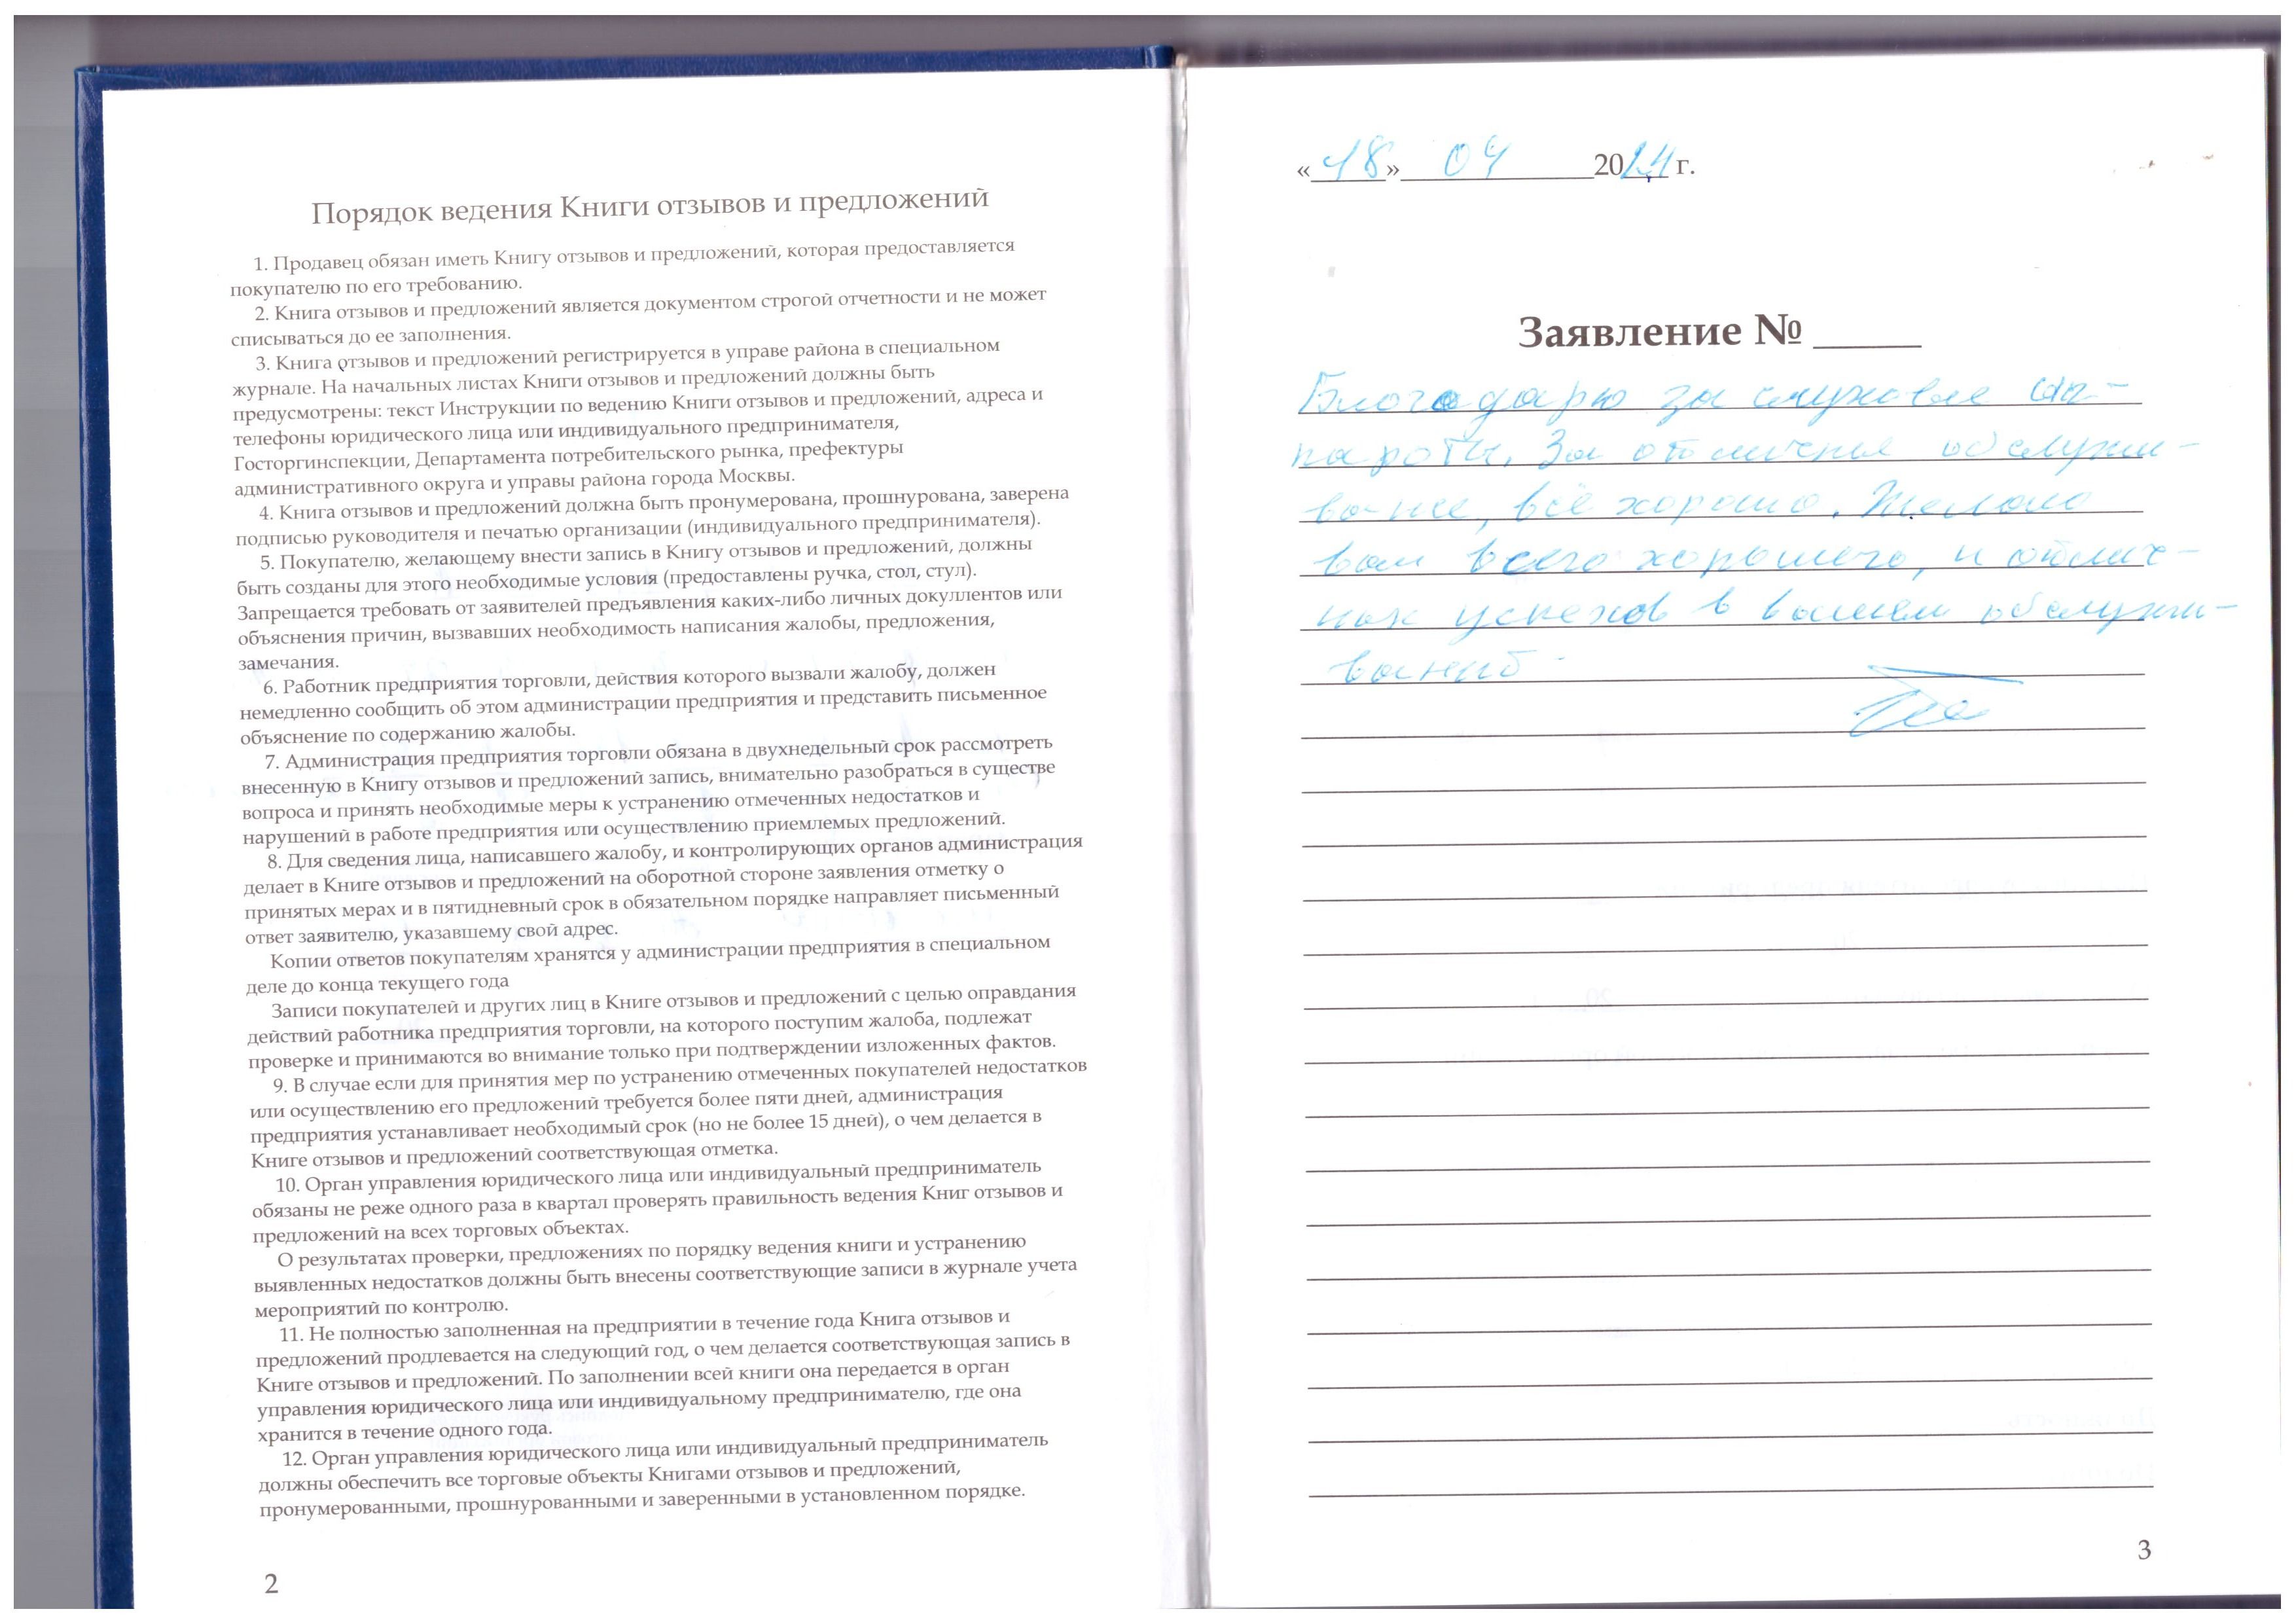 Порядок ведения Книги отзывов и предложений
1. Продавец обязан иметь Книгу отзывов и предложений, которая предоставляется
покупателю по его требованию.
2. Книга отзывов и предложений является документом строгой отчетности и не может
списываться до ее заполнения.
3. Книга отзывов и предложений регистрируется в управе района в специальном
журнале. На начальных листах Книги отзывов и предложений должны быть
предусмотрены: текст Инструкции по ведению Книги отзывов и предложений, адреса и
телефоны юридического лица или индивидуального предпринимателя,
Госторгинспекции, Департамента потребительского рынка, префектуры
административного округа и управы района города Москвы.
4. Книга отзывов и предложений должна быть пронумерована, прошнурована, заверена
подписью руководителя и печатью организации (индивидуального предпринимателя).
5. Покупателю, желающему внести запись в Книгу отзывов и предложений, должны
быть созданы для этого необходимые условия (предоставлены ручка, стол, стул).
Запрещается требовать от заявителей предъявления каких-либо личных докуллентов или
объяснения причин, вызвавших необходимость написания жалобы, предложения,
замечания.
6. Работник предприятия торговли, действия которого вызвали жалобу, должен
немедленно сообщить об этом администрации предприятия и представить письменное
объяснение по содержанию жалобы.
7. Администрация предприятия торговли обязана в двухнедельный срок рассмотреть
внесенную в Книгу отзывов и предложений запись, внимательно разобраться в существе
вопроса и принять необходимые меры к устранению отмеченных недостатков и
нарушений в работе предприятия или осуществлению приемлемых предложений.
8. Для сведения лица, написавшего жалобу, и контролирующих органов администрация
делает в Книге отзывов и предложений на оборотной стороне заявления отметку о
принятых мерах и в пятидневный срок в обязательном порядке направляет письменный
ответ заявителю, указавшему свой адрес.
Копии ответов покупателям хранятся у администрации предприятия в специальном
деле до конца текущего года
Записи покупателей и других лиц в Книге отзывов и предложений с целью оправдания
действий работника предприятия торговли, на которого поступим жалоба, подлежат
проверке и принимаются во внимание только при подтверждении изложенных фактов.
9. В случае если для принятия мер по устранению отмеченных покупателей недостатков
или осуществлению его предложений требуется более пяти дней, администрация
предприятия устанавливает необходимый срок (но не более 15 дней), о чем делается в
Книге отзывов и предложений соответствующая отметка.
10. Орган управления юридического лица или индивидуальный предприниматель
обязаны не реже одного раза в квартал проверять правильность ведения Книг отзывов и
предложений на всех торговых объектах.
О результатах проверки, предложениях по порядку ведения книги и устранению
выявленных недостатков должны быть внесены соответствующие записи в журнале учета
мероприятий по контролю.
11. Не полностью заполненная на предприятии в течение года Книга отзывов и
предложений продлевается на следующий год, о чем делается соответствующая запись в
Книге отзывов и предложений. По заполнении всей книги она передается в орган
управления юридического лица или индивидуальному предпринимателю, где она
хранится в течение одного года.
12. Орган управления юридического лица или индивидуальный предприниматель
должны обеспечить все торговые объекты Книгами отзывов и предложений,
пронумерованными, прошнурованными и заверенными в установленном порядке.
2
«18» 04 20 г.
Заявление №
Благодарю за слуховые ап-
параты. За отличные обслужи-
вание, всё хорошо. Желаю
вам всего хорошего, и отлич-
ных успехов в вашем обслужи-
вании
3